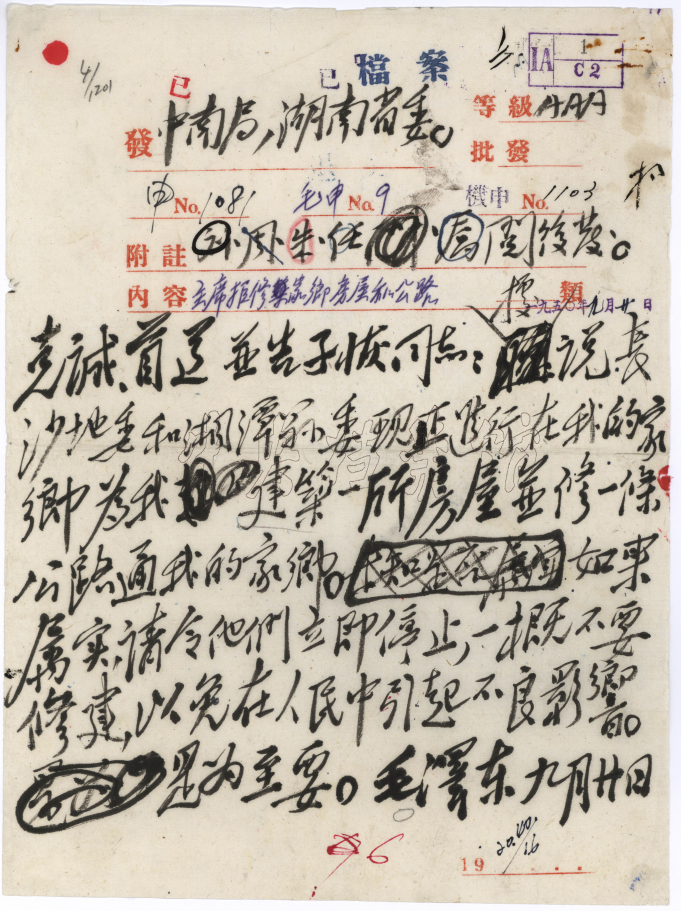 4/1201
已 已 檔案
IA 1 C2
發 中南局，湖南省委。 等級 AAA
批發
申 No. 1081 毛申 No. 9 機申 No. 1103
附註 周 朱 任 閱後發。
內容 主席拒修築家鄉房屋和公路 類
一九五〇年九月廿日
克誠、首道並告子恢同志：据说長
沙地委和湘潭縣委現正進行在我的家
鄉為我建築一所房屋並修一條
公路通我的家鄉。如果
屬实，請令他們立即停止，一概不要
修建，以免在人民中引起不良影響。
是为至要。毛澤东 九月廿日
6
19